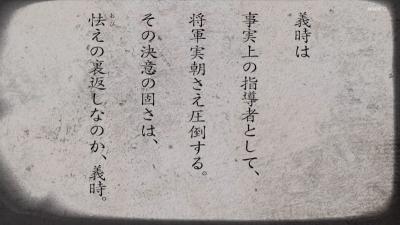 義時は
事実上の指導者として、
将軍実朝さえ圧倒する。
その決意の固さは、
怯えの裏返しなのか、義時。